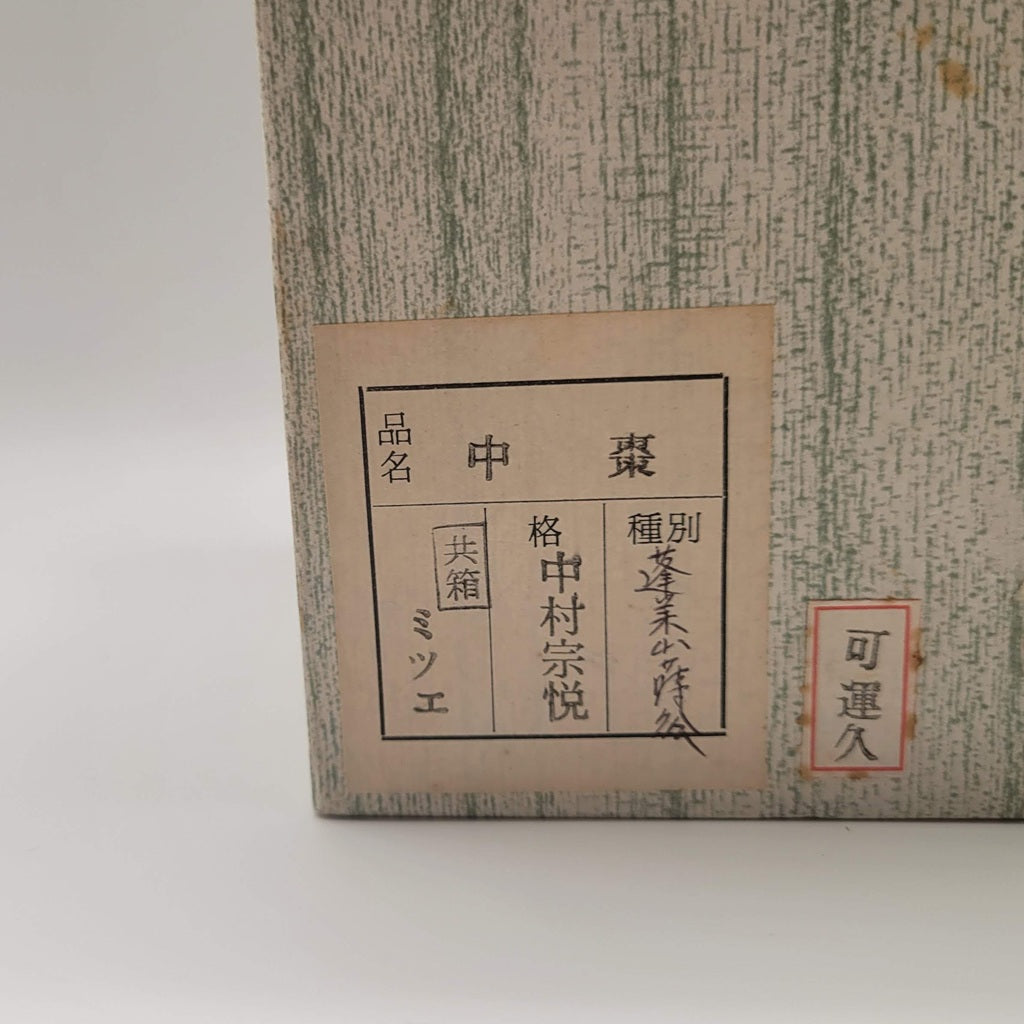 品名 中 棗
種別
蓬莱山蒔絵
格
中村宗悦
共箱
ミツエ
可運久